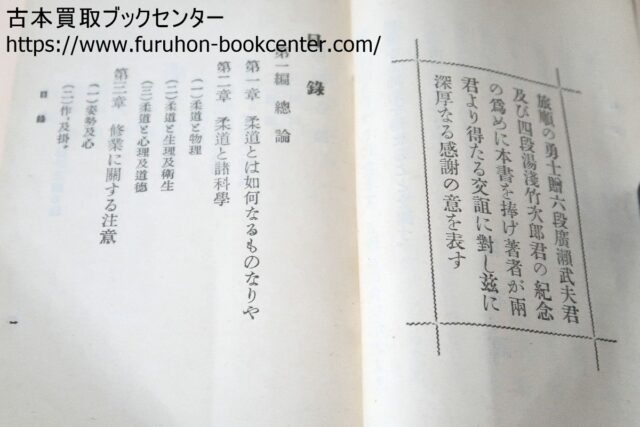 古本買取ブックセンター
https://www.furuhon-bookcenter.com/
旅順の勇士贈六段廣瀨武夫君
及び四段湯淺竹次郎君の紀念
の爲めに本書を捧げ著者が兩
君より得たる交誼に對し玆に
深厚なる感謝の意を表す
目錄
第一編 總論
第一章 柔道とは如何なるものなりや
第二章 柔道と諸科學
(一)柔道と物理
(二)柔道と生理及衛生
(三)柔道と心理及道德
第三章 修業に關する注意
(一)姿勢及心
(二)作、及掛。
目錄
一